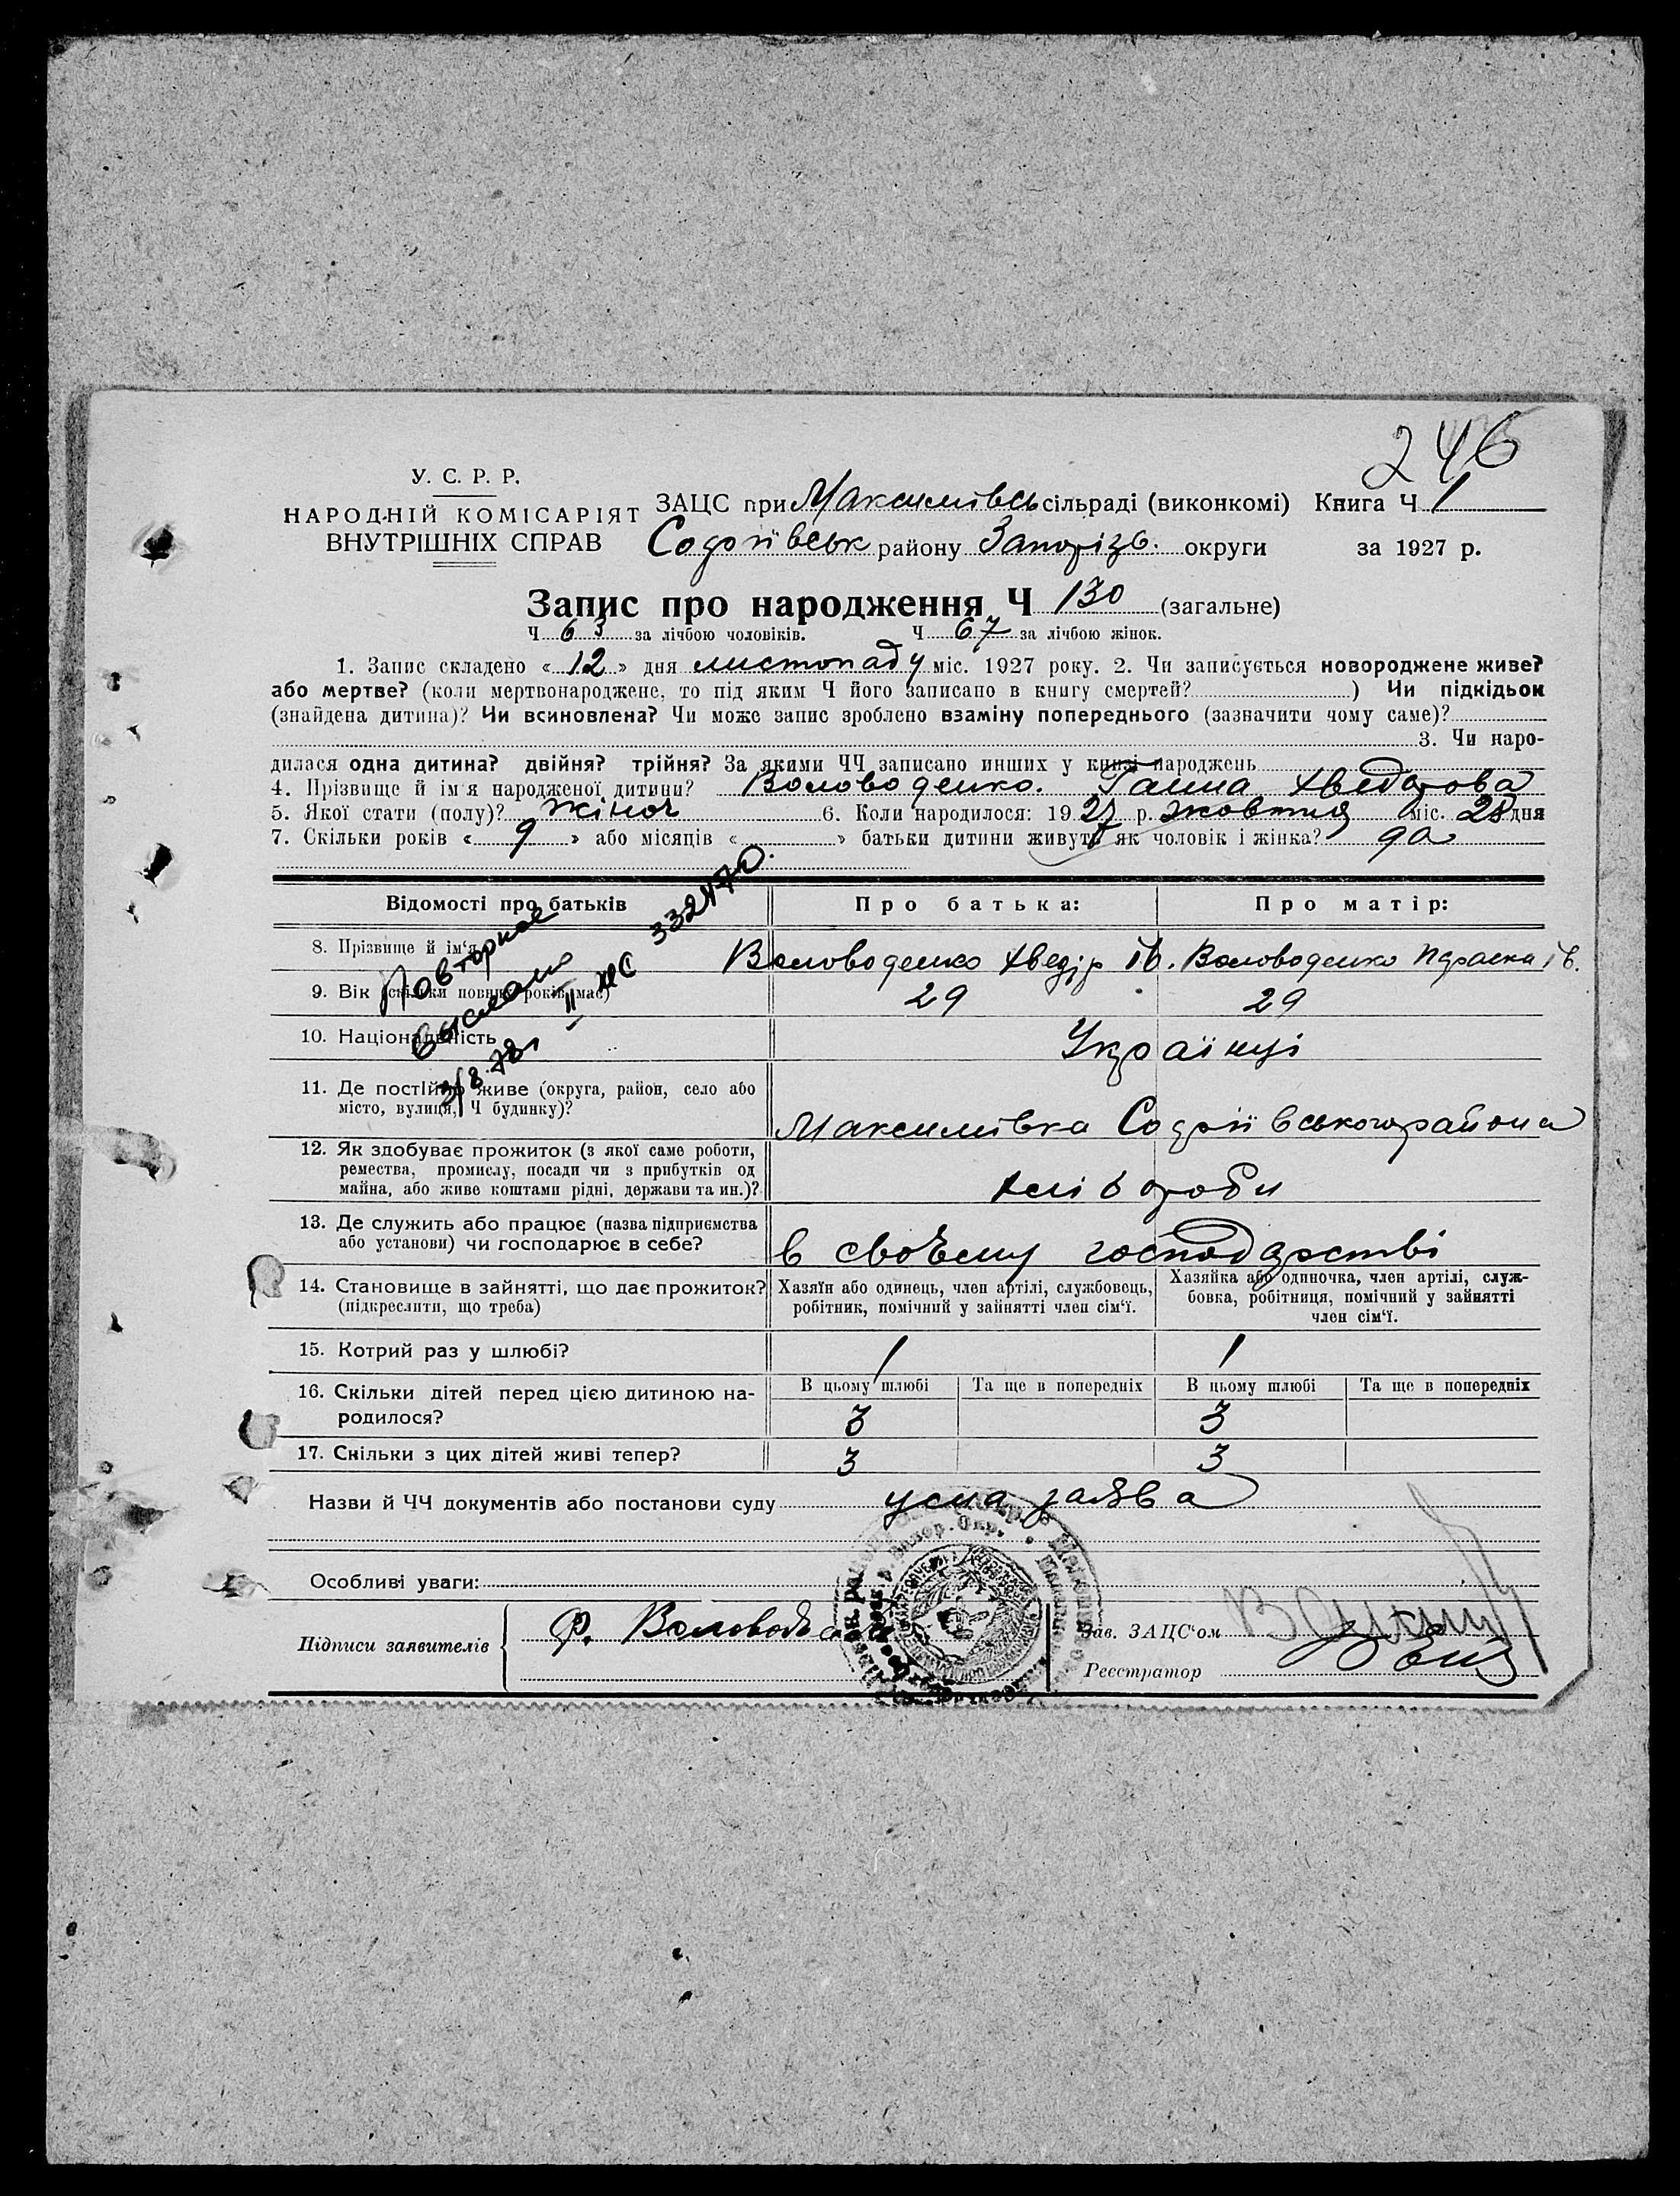 246
У. С. Р. Р.
НАРОДНІЙ КОМІСАРІЯТ
ВНУТРІШНІХ СПРАВ
ЗАЦС при Максимівсь сільраді (виконкомі) Книга Ч 1
Софіївськ району Запоріз. округи за 1927 р.
Запис про народження Ч 130 (загальне)
Ч 63 за лічбою чоловіків. Ч 67 за лічбою жінок.
1. Запис складено « 12 » дня листопаду міс. 1927 року. 2. Чи записується новороджене живе?
або мертве? (коли мертвонароджене, то під яким Ч його записано в книгу смертей? ) Чи підкідьок
(знайдена дитина)? Чи всиновлена? Чи може запис зроблено взаміну попереднього (зазначити чому саме)?
3. Чи наро-
дилася одна дитина? двійня? трійня? За якими ЧЧ записано инших у книзі народжень
4. Прізвище й ім'я народженої дитини? Воловоденко. Ганна Хведорова
5. Якої стати (полу)? жіноч 6. Коли народилося: 1927 р. жовтня міс. 28 дня
7. Скільки років « 9 » або місяців « » батьки дитини живуть як чоловік і жінка? да
Відомості про батьків Про батька: Про матір:
8. Прізвище й ім'я Воловоденко Хведір Ів. Воловоденко Параска Ів.
9. Вік (скільки повних років має) 29 29
10. Національність Українці
11. Де постійно живе (округа, район, село або
місто, вулиця, Ч будинку)? Максимівка Софіївського района
12. Як здобуває прожиток (з якої саме роботи,
ремества, промислу, посади чи з прибутків од
майна, або живе коштами рідні, держави та ин.)? хлібороби
13. Де служить або працює (назва підприємства
або установи) чи господарює в себе? в своъему господарстві
14. Становище в зайнятті, що дає прожиток?
(підкреслити, що треба)
Хазяїн або одинець, член артілі, службовець,
робітник, помічний у зайнятті член сім'ї.
Хазяйка або одиночка, член артілі, служ-
бовка, робітниця, помічний у зайнятті
член сім'ї.
15. Котрий раз у шлюбі? 1 1
16. Скільки дітей перед цією дитиною на-
родилося?
В цьому шлюбі Та ще в попередніх В цьому шлюбі Та ще в попередніх
3 3
17. Скільки з цих дітей живі тепер? 3 3
Повторное
выслано
3/8-78г II ЖС 332470.
Назви й ЧЧ документів або постанови суду усна заява
Особливі уваги:
Підписи заявителів Ф. Воловоден
Зав. ЗАЦС'ом
Реєстратор